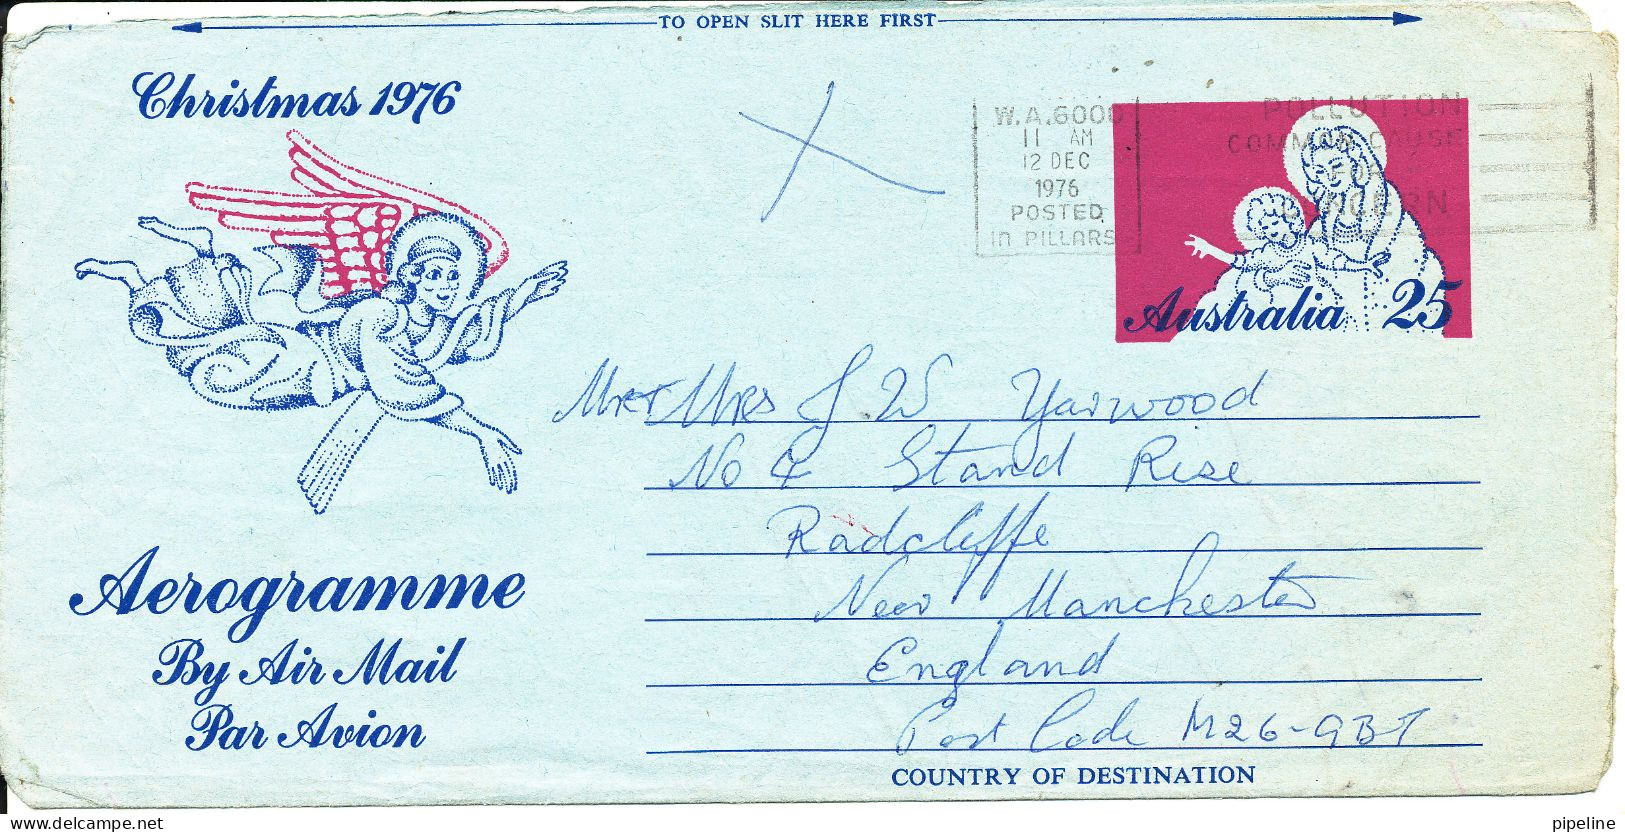 TO OPEN SLIT HERE FIRST
Christmas 1976
W.A. 6000
11 AM
12 DEC
1976
POSTED
in PILLARS
POLLUTION
COMMON CAUSE
FOR
CONCERN
Australia 25
Mr & Mrs J W Yarwood
No 4 Stand Rise
Radcliffe
New Manchester
England
Post Code M26-9BT
COUNTRY OF DESTINATION
Aerogramme
By Air Mail
Par Avion
www.delcampe.net
pipeline